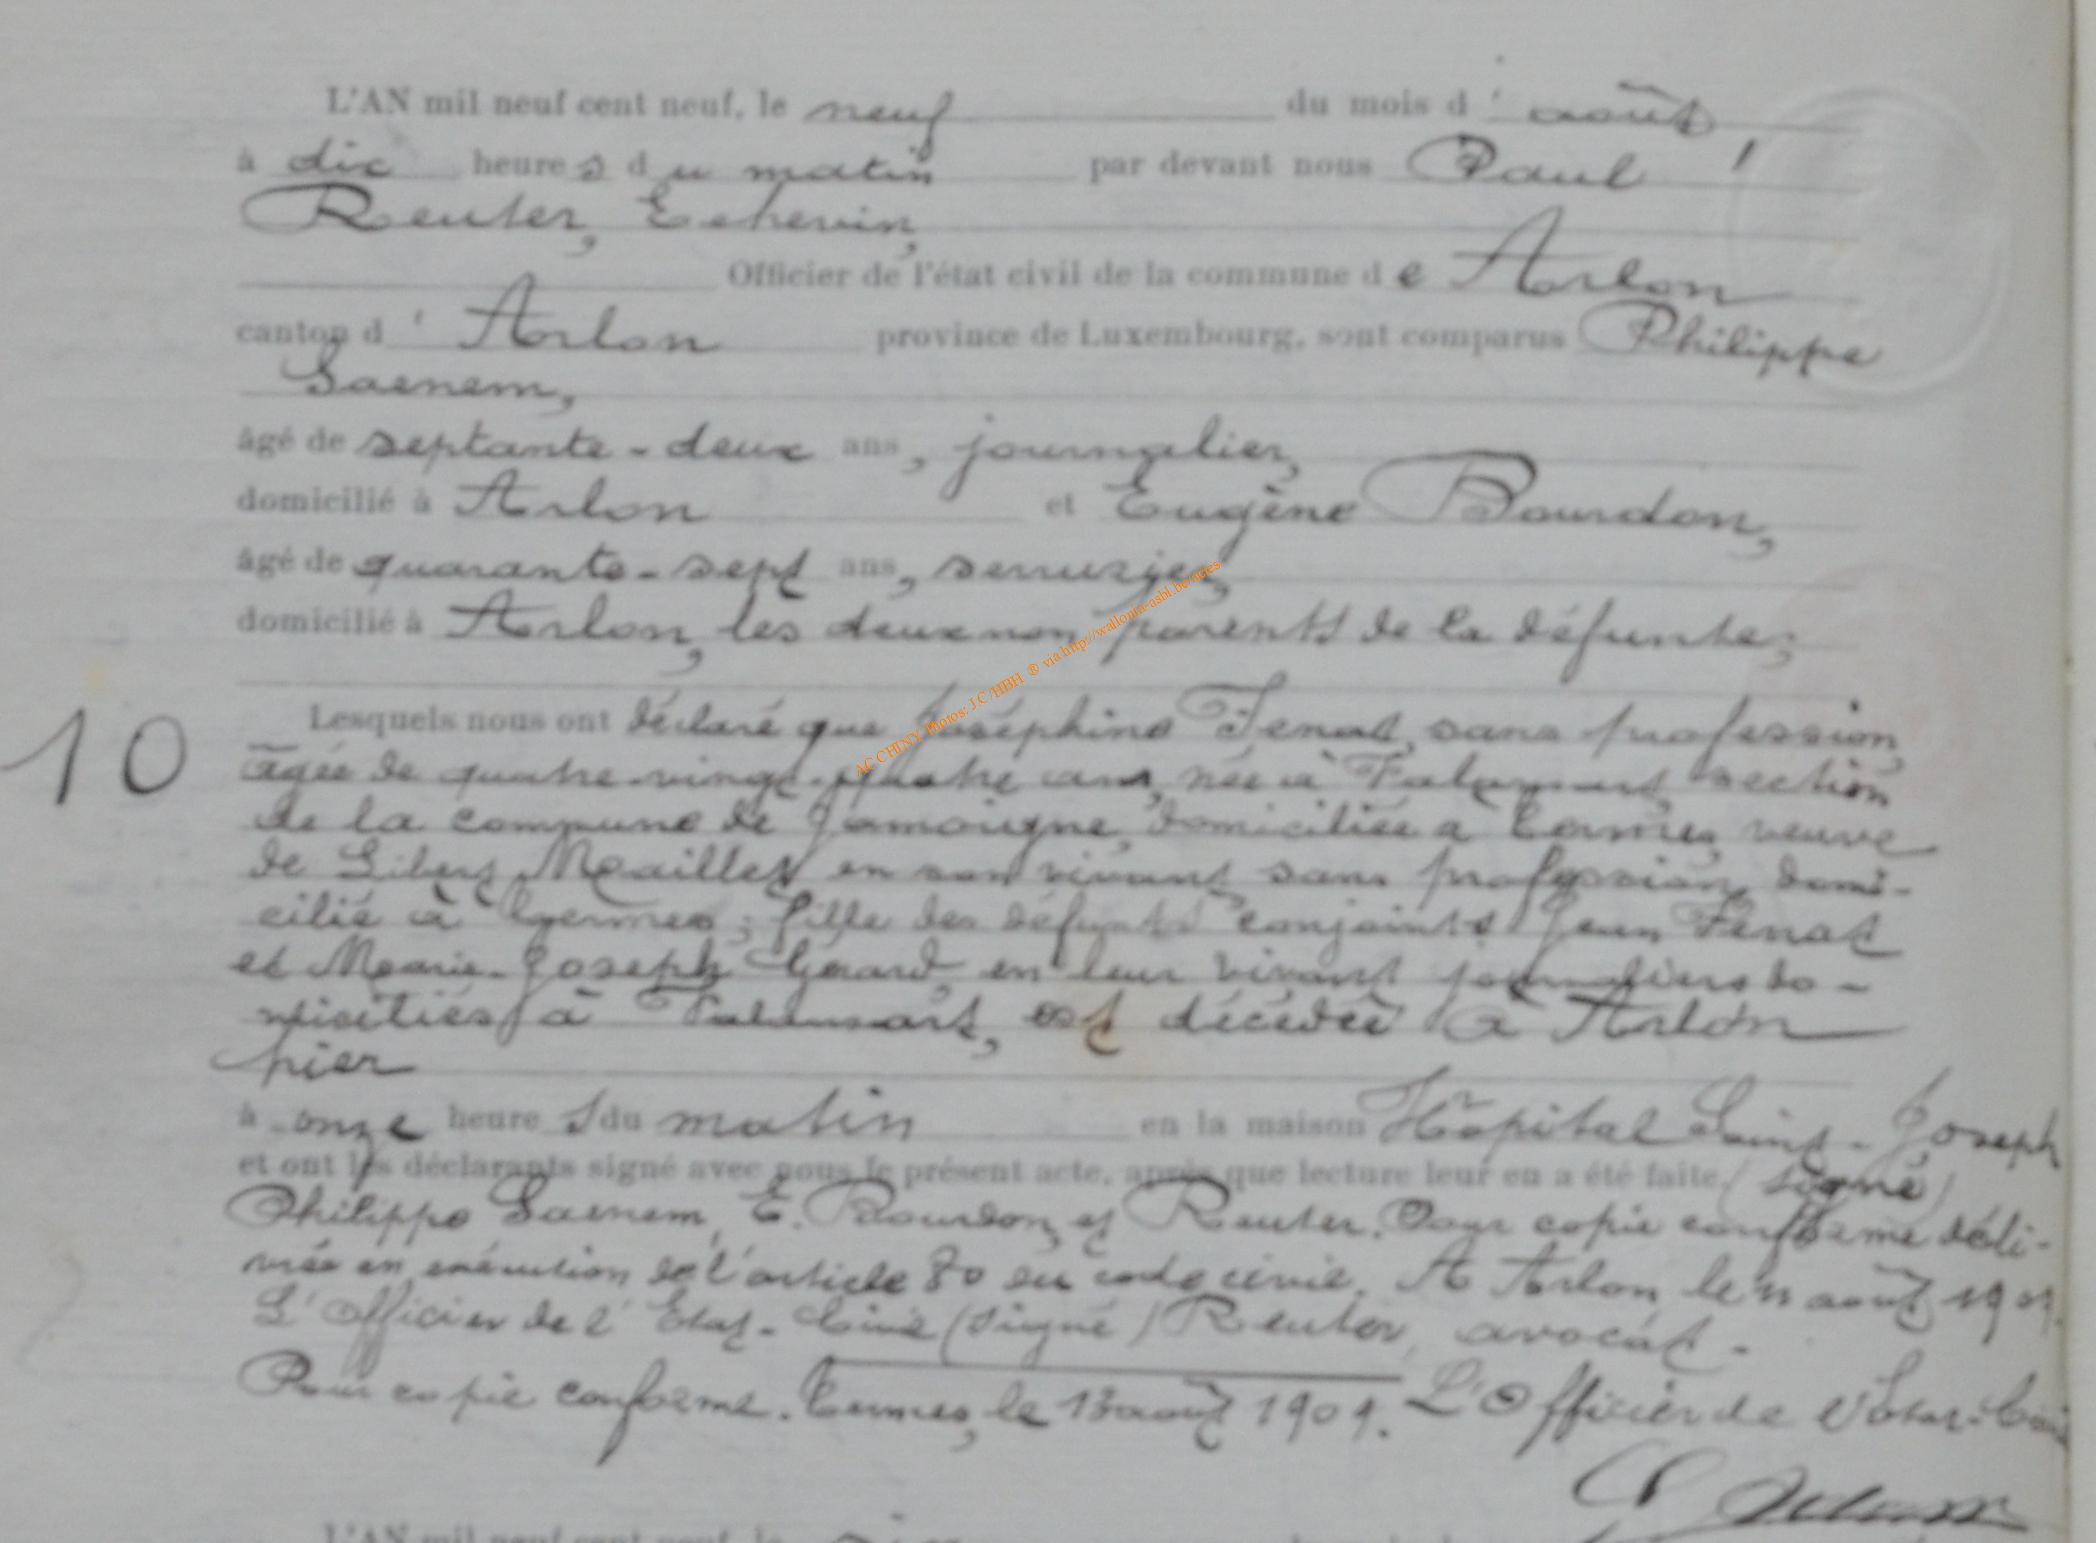 L'AN mil neuf cent neuf, le neuf du mois d' août
à dix heures du matin par devant nous Paul
Reuter, Echevin,
Officier de l'état civil de la commune de Arlon
canton d' Arlon province de Luxembourg, sont comparus Philippe
Saenem,
âgé de septante-deux ans, journalier,
domicilié à Arlon et Eugène Bourdon,
âgé de quarante-sept ans, serrurier,
domicilié à Arlon, les deux non parents de la défunte;
10
Lesquels nous ont déclaré que Joséphine Fenat, sans profession,
âgée de quatre-vingt-quatre ans, née à section
de la commune de Jamoigne, domiciliée à Termes, veuve
de Libert Maillet en son vivant sans profession domi-
cilié à Termes; fille des défunts conjoints Jean Fenat
et Marie-Joseph Gérard, en leur vivant journaliers do-
miciliés à est décédée à Arlon
hier
à onze heures du matin en la maison Hôpital Saint-Joseph
et ont les déclarants signé avec nous le présent acte, après que lecture leur en a été faite. (signé)
Philippe Saenem, E. Bourdon et Reuter. Pour copie conforme déli-
vrée en exécution de l'article 80 du code civil. A Arlon, le 11 août 1909.
L'Officier de l'Etat-Civil (signé) Reuter, avocat.-
Pour copie conforme. Termes, le 13 août 1909. L'Officier de l'Etat-Civil
AC CHINY Photos: J C/HBH ® via http://wallonia-asbl.be/actes
L'AN mil neuf cent neuf, le